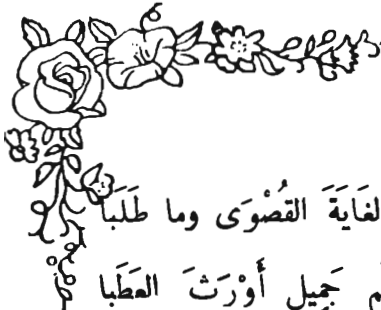 لغَايَةَ القُصْوَى وما طَلَبَا
جَمِيلٍ أَوْرَثَ العَطَبا